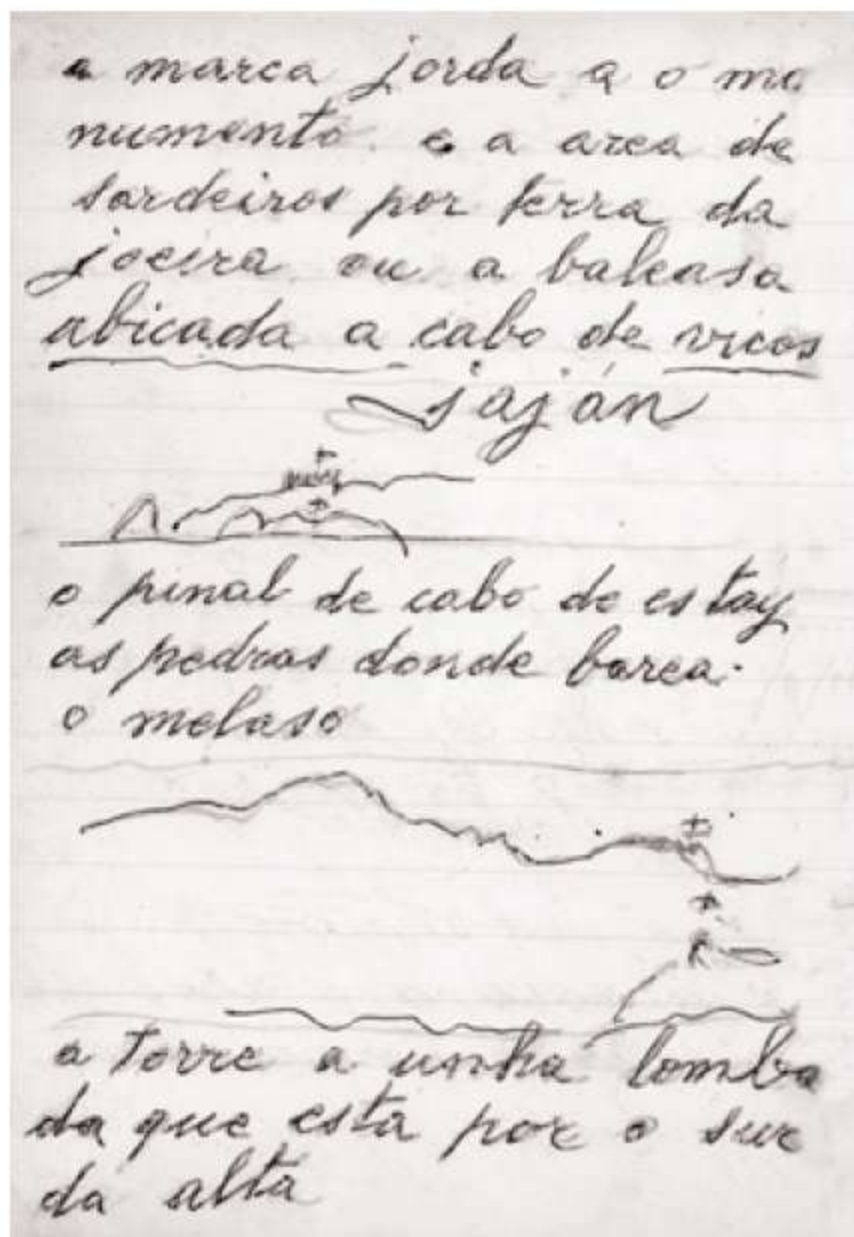 a marca jorda a o mo
numento e a area de
sardeiros por terra da
joeira ou a baleasa
abicada a cabo de vicos
jaján
o pinal de cabo de estay
as pedras donde barca.
o melaso
a torre a unha lomba
da que esta por o sur
da alta